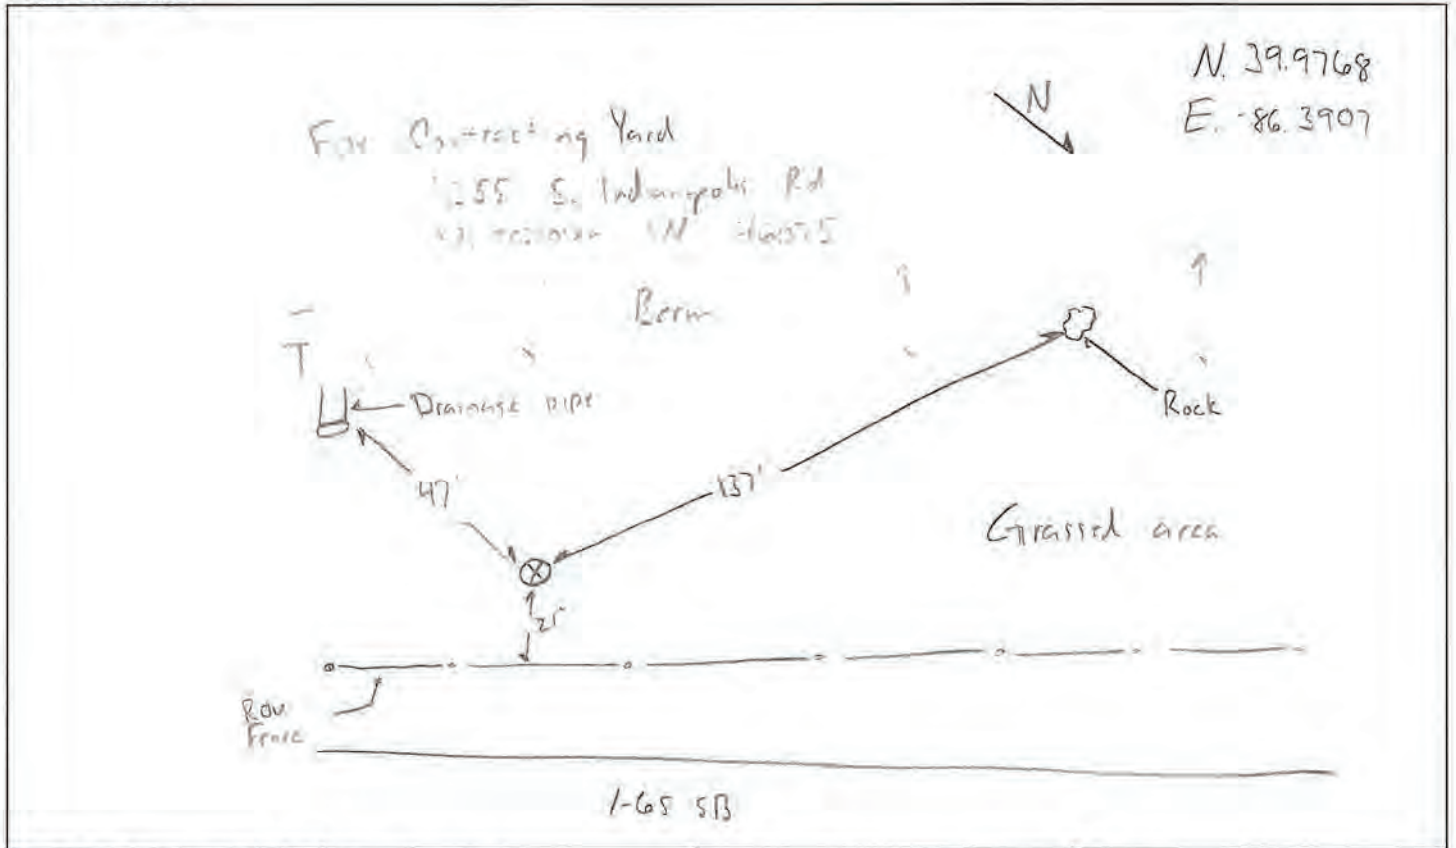 N. 39.9768
E. -86.3907
N
Contracting Yard
S. Indianapolis Rd
IN
Berm
Drainage pipe
Rock
47'
137'
Grassed area
21'
ROW
Fence
I-65 SB